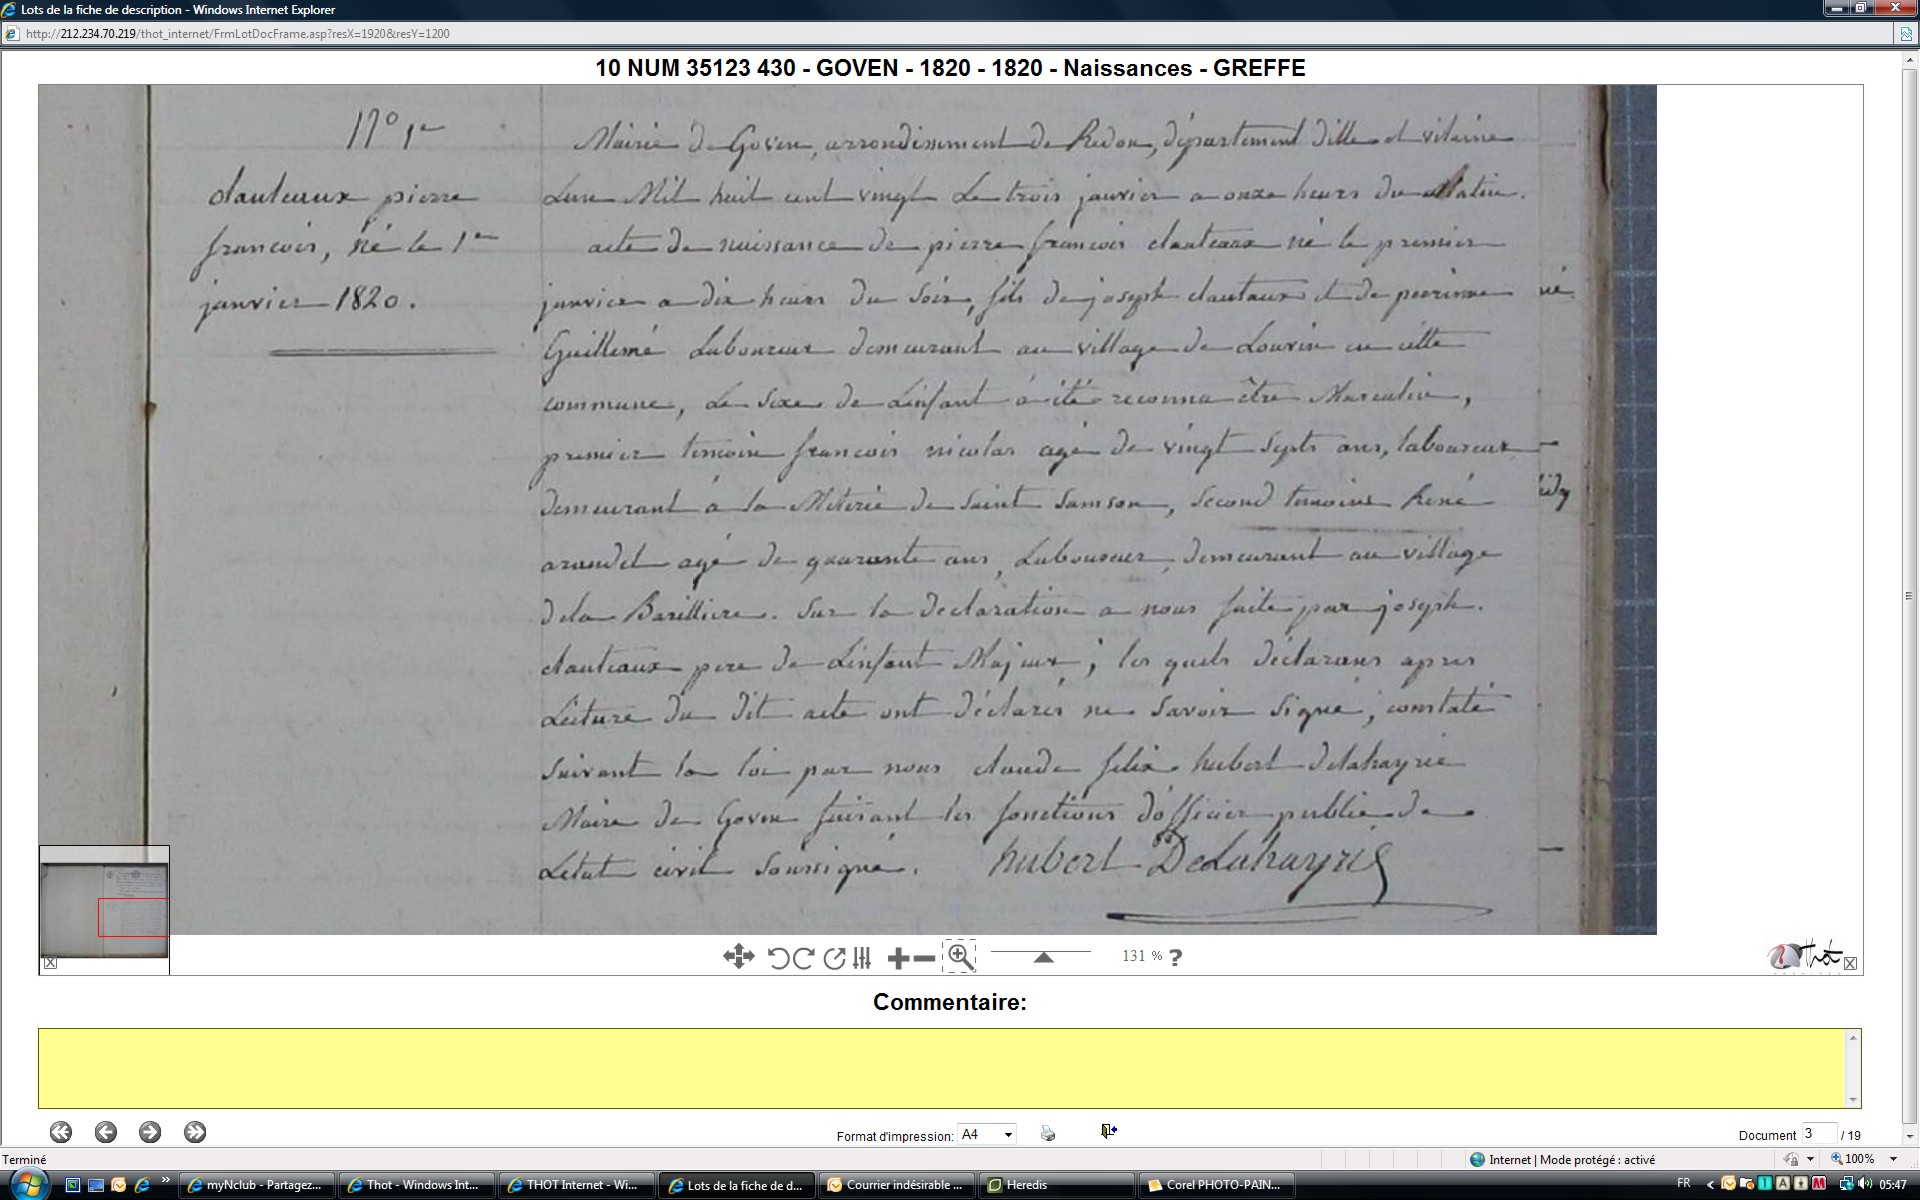 Lots de la fiche de description - Windows Internet Explorer
http://212.234.70.219/thot_internet/FrmLotDocFrame.asp?resX=1920&resY=1200
10 NUM 35123 430 - GOVEN - 1820 - 1820 - Naissances - GREFFE
N° 1er
dauteaux pierre
francois, né le 1er
janvier 1820.
Mairie de Goven, arrondissement de Redon, département dille et vilaine
Lan Mil huit cent vingt Le trois janvier a onze heurs du Matin.
acte de naissance de pierre francois dauteaux né le premier
janvier a dix heurs du soir, fils de joseph dautaux et de perrinne
Guillemé Laboureur demeurant au village de Louvin en cette
commune, Le sexe de Linfant à été reconnu être Masculin,
premier temoin francois nicolas agé de vingt septs ans, laboureur
demeurant à la Miterie de saint Samson, second temoins René
arandel agé de quarante ans, Laboureur, demeurant au village
dela Barilliere. Sur la declaration a nous faite par joseph
dauteaux pere de Linfant Majeur; les quels déclarans apres
Lecture du dit acte ont déclarés ne savoir signé, constaté
suivant la loi par nous claude felix hubert delahayrie
Maire de Goven faisant les fonctions dofficier public de
Letat civil soussigné. hubert DeLahayrie
né
131 % ?
Thot
Commentaire:
Format d'impression: A4
Document 3 / 19
Terminé
Internet | Mode protégé : activé
100%
myNclub - Partagez...
Thot - Windows Int...
THOT Internet - Wi...
Lots de la fiche de d...
Courrier indésirable ...
Heredis
Corel PHOTO-PAIN...
FR
05:47